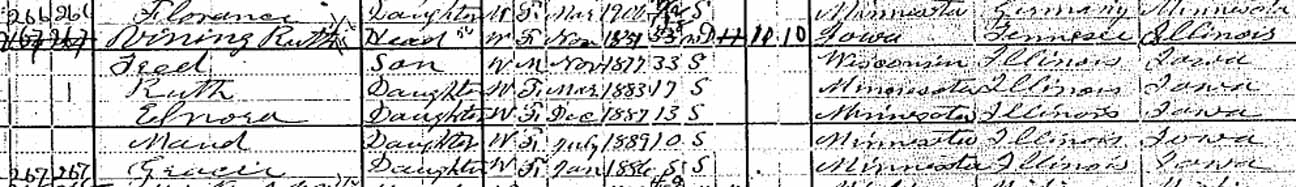 266 266 Florence Daughter W F Mar 1900 S Minnesota Germany Minnesota
267 267 Vining Ruth Head W F Nov D 11 10 Iowa Tennesee Illinois
Fred Son W M Nov 1877 33 S Wisconsin Illinois Iowa
1 Ruth Daughter W F Mar 1883 17 S Minnesota Illinois Iowa
Elnora Daughter W F Dec 1887 13 S Minnesota Illinois Iowa
Maud Daughter W F July 1889 10 S Minnesota Illinois Iowa
267 267 Gracie Daughter W F Jan S Minnesota Illinois Iowa